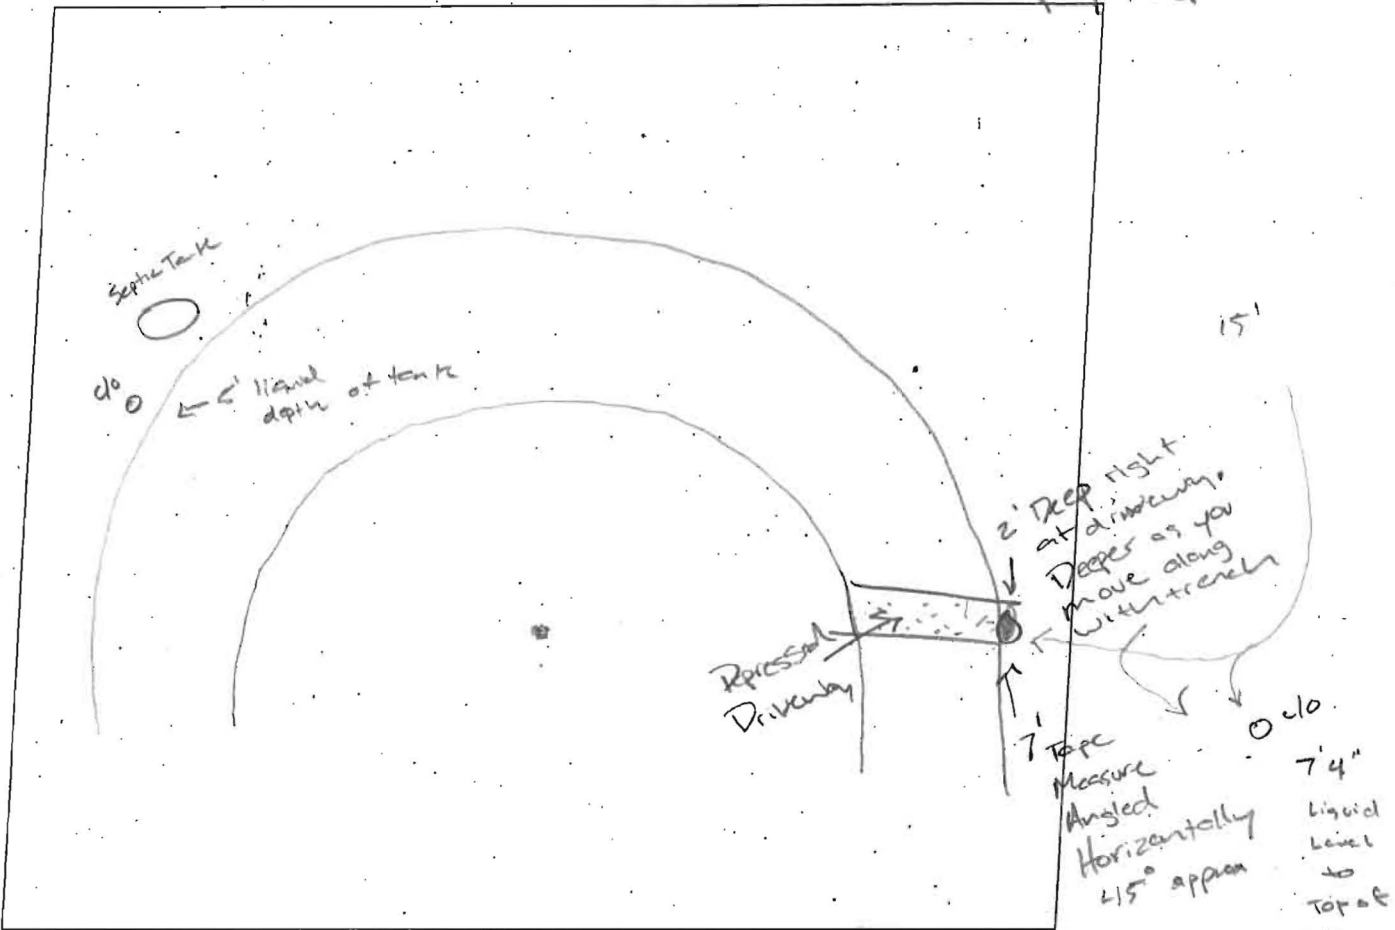 Septic Tank
c/o
← 5' liquid
depth of tank
15'
2' Deep right
at driveway.
Deeper as you
move along
with trench
Depressed
Driveway
7' Tape
Measure
Angled
Horizontally
45° approx
c/o
7'4"
Liquid
Level
to
Top of